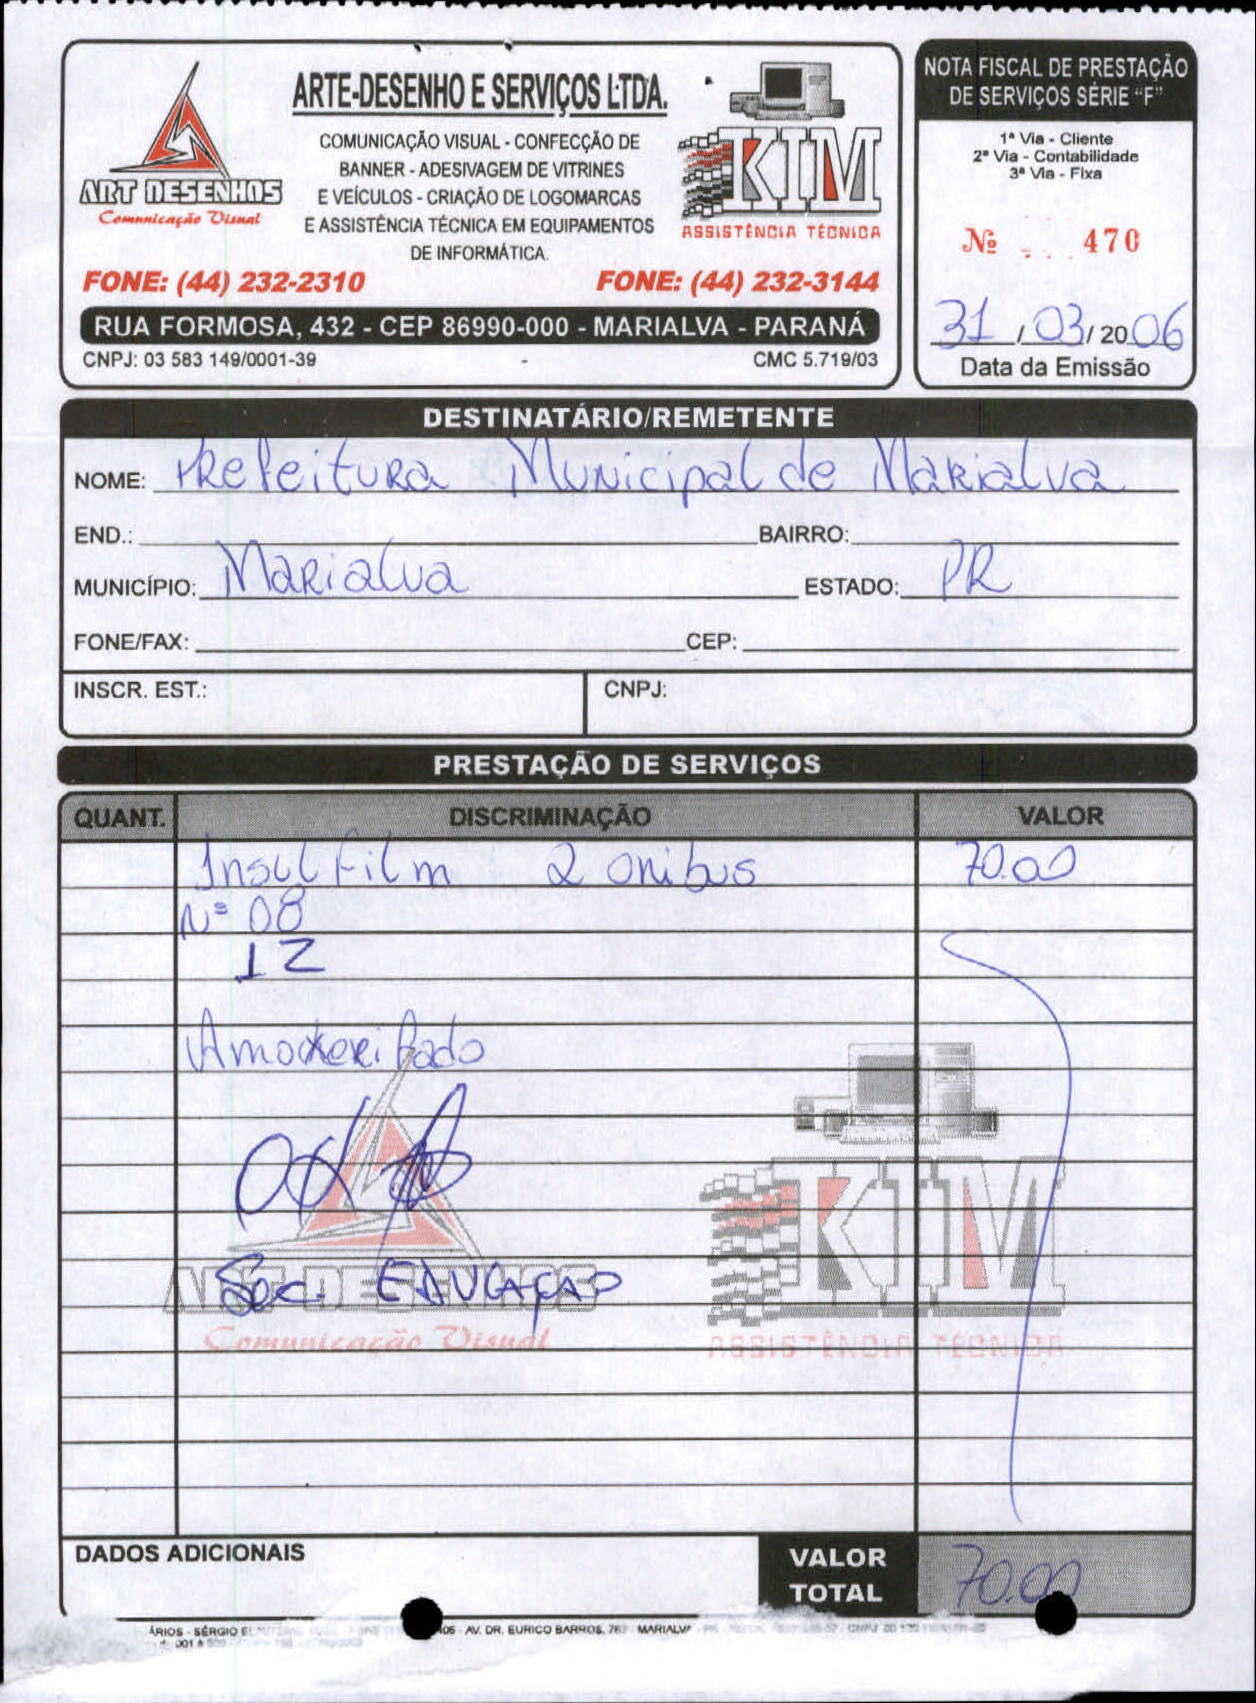 ARTE-DESENHO E SERVIÇOS LTDA.
COMUNICAÇÃO VISUAL - CONFECÇÃO DE
BANNER - ADESIVAGEM DE VITRINES
E VEÍCULOS - CRIAÇÃO DE LOGOMARCAS
E ASSISTÊNCIA TÉCNICA EM EQUIPAMENTOS
DE INFORMÁTICA.
ART DESENHOS
Comunicação Visual
KIM
ASSISTÊNCIA TÉCNICA
FONE: (44) 232-2310 FONE: (44) 232-3144
RUA FORMOSA, 432 - CEP 86990-000 - MARIALVA - PARANÁ
CNPJ: 03 583 149/0001-39 CMC 5.719/03
NOTA FISCAL DE PRESTAÇÃO
DE SERVIÇOS SÉRIE "F"
1ª Via - Cliente
2ª Via - Contabilidade
3ª Via - Fixa
Nº 470
31/03/2006
Data da Emissão
DESTINATÁRIO/REMETENTE
NOME: Prefeitura Municipal de Marialva
END.: BAIRRO:
MUNICÍPIO: Marialva ESTADO: PR
FONE/FAX: CEP:
INSCR. EST.: CNPJ:
PRESTAÇÃO DE SERVIÇOS
QUANT. DISCRIMINAÇÃO VALOR
Insul film 2 onibus 70.00
Nº 08
12
KIM
ART DESENHOS
Sec. EDUCAÇÃO
Comunicação Visual
ASSISTÊNCIA TÉCNICA
DADOS ADICIONAIS
VALOR TOTAL 70.00
ÁRIOS - SÉRGIO AV. DR. EURICO BARROS, MARIALVA